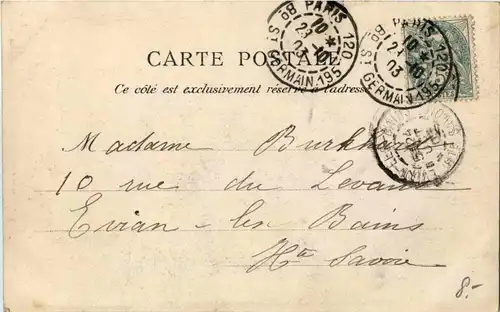 PARIS 120
10 *
23 -10
03
Bd St GERMAIN.195
PARIS 120
10 *
23 -10
03
Bd St GERMAIN.195
CARTE POSTALE
Ce côté est exclusivement réservé à l'adresse
Madame Burkhard
10 rue du Levant
Evian-les Bains
Hte Savoie
8.-